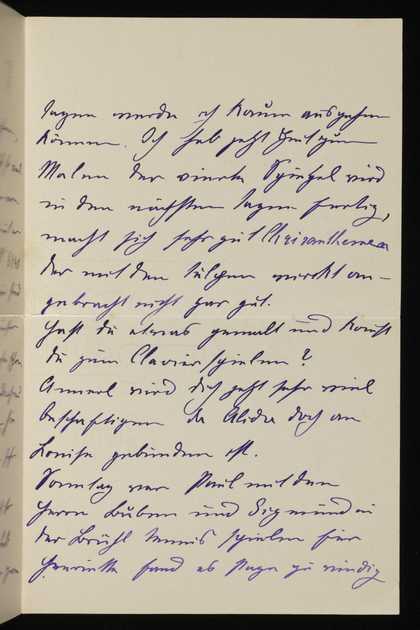 Tagen werde ich kaum ausgehen
können. Ich hab jetzt Zeit zum
Malen der vierte Spiegel wird
in den nächsten Tagen fertig,
macht sich sehr gut Chrisanthemen
der mit den Tulpen wirkt an-
gebracht nicht gar gut.
Hast du etwas gemalt und kommst
du zum Clavierspielen?
Annerl wird dich jetzt sehr viel
beschäftigen da Alida doch an
Louise gebunden ist.
Sonntag war Paul mit den
Herrn Buben und Sigmund in
der Brühl Tennis spielen für
Henriette fand es Papa zu windig